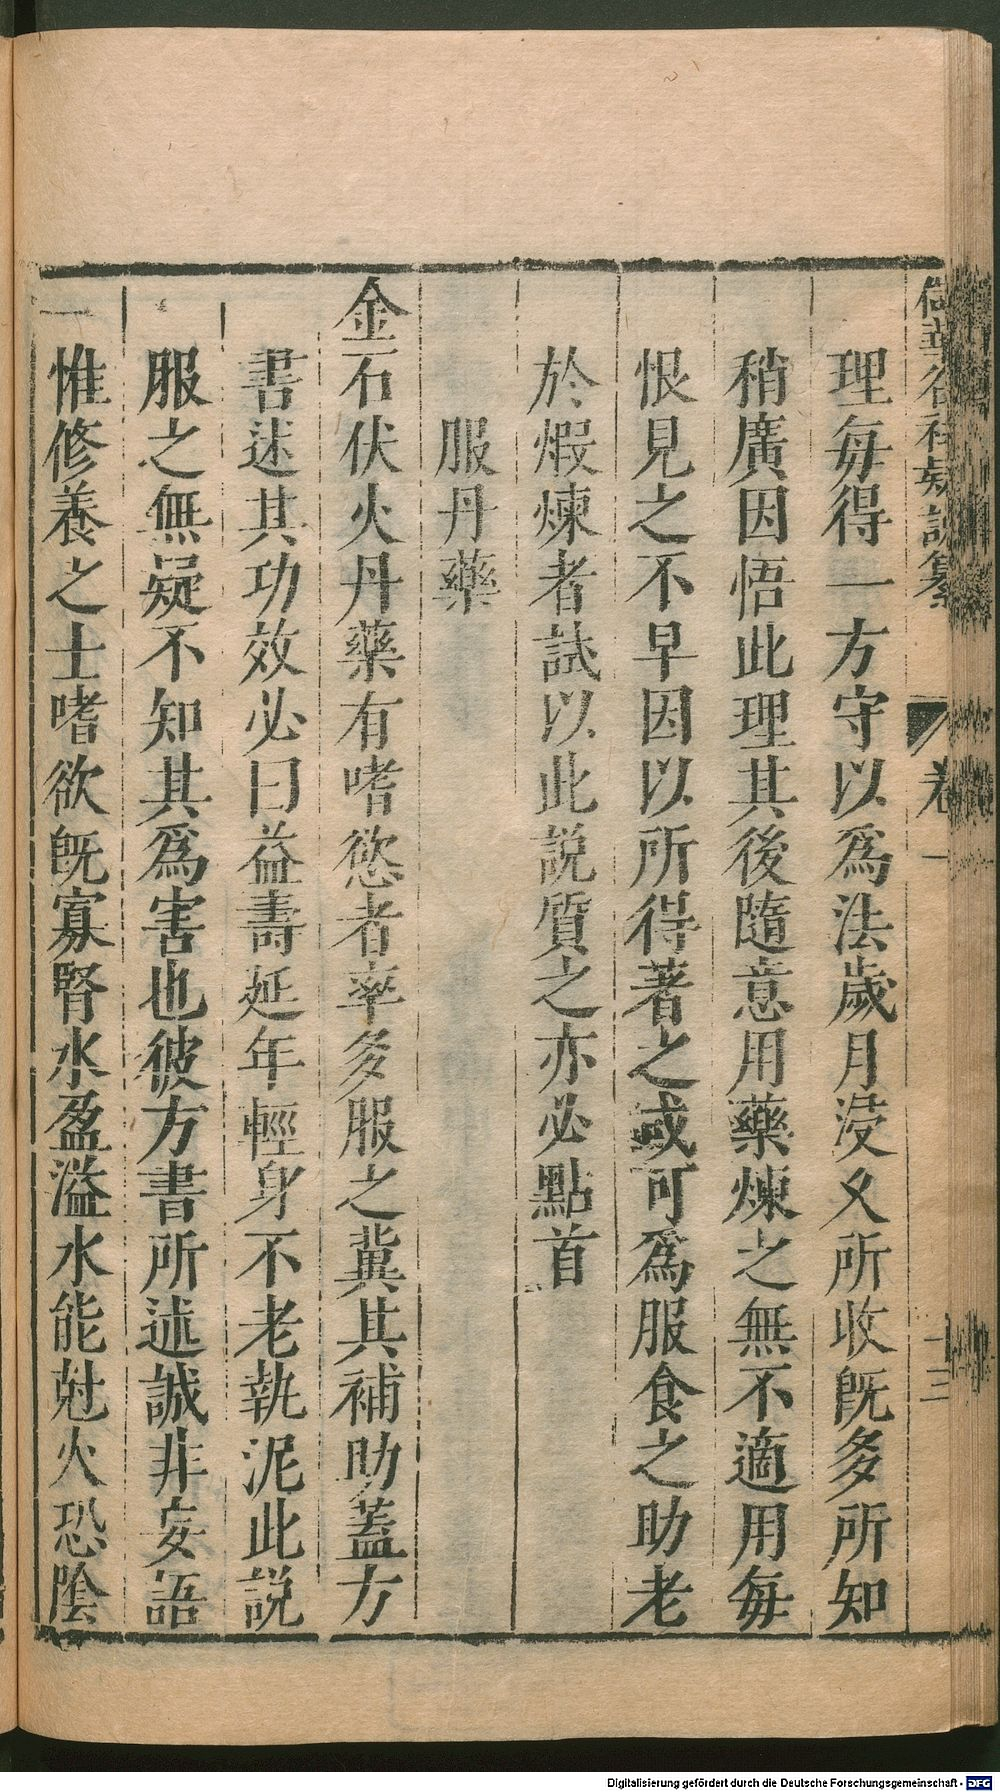 理每得一方守以爲法歲月浸久所收旣多所知
稍廣因悟此理其後隨意用藥煉之無不適用每
恨見之不早因以所得著之或可爲服食之助老
於煆煉者試以此説質之亦必點首
服丹藥
金石伏火丹藥有嗜慾者率多服之冀其補助蓋方
書述其功效必曰益壽延年輕身不老執泥此説
服之無疑不知其爲害也彼方書所述誠非妄語
惟修養之士嗜欲旣寡腎水盈溢水能尅火恐陰
Digitalisierung gefördert durch die Deutsche Forschungsgemeinschaft - DFG